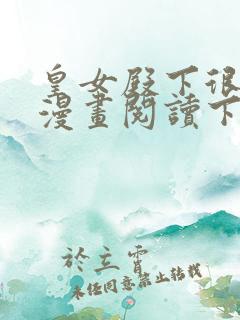 皇女殿下很
漫畫閱讀下
於立霄
未經同意禁止轉載